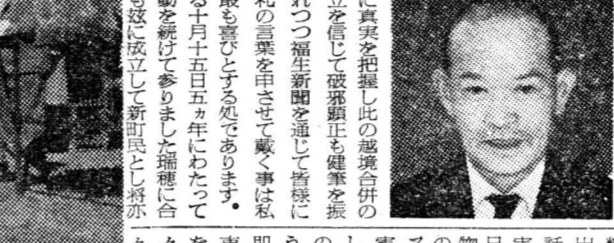 に真実を把握し此の越境合併の
立を信じて破邪顕正も健筆を振
れつつ福生新聞を通じて皆様に
礼の言葉を申させて戴く事は私
最も喜びとする処であります。
る十月十五日五ヵ年にわたって
動を続けて参りました瑞穂に合
も玆に成立して新町民とし将亦